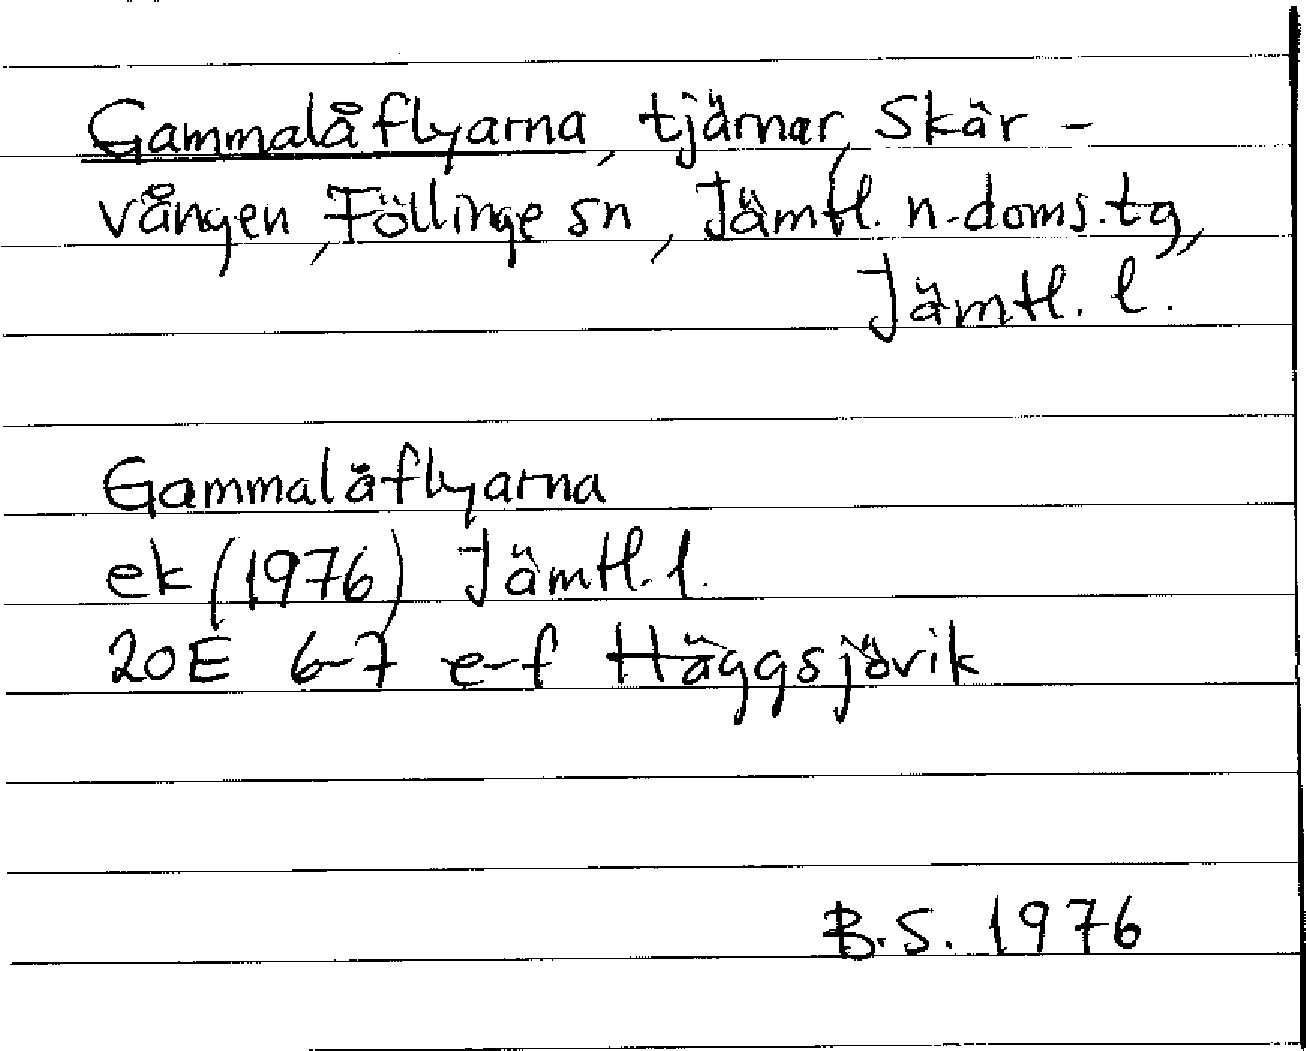 Gammalåflyarna, tjärnar, Skär-
vången, Föllinge sn, Jämtl. n. doms. tg,
Jämtl. l.
Gammalåflyarna
ek (1976) Jämtl. l.
20E 6-7 e-f Häggsjövik
B.S. 1976